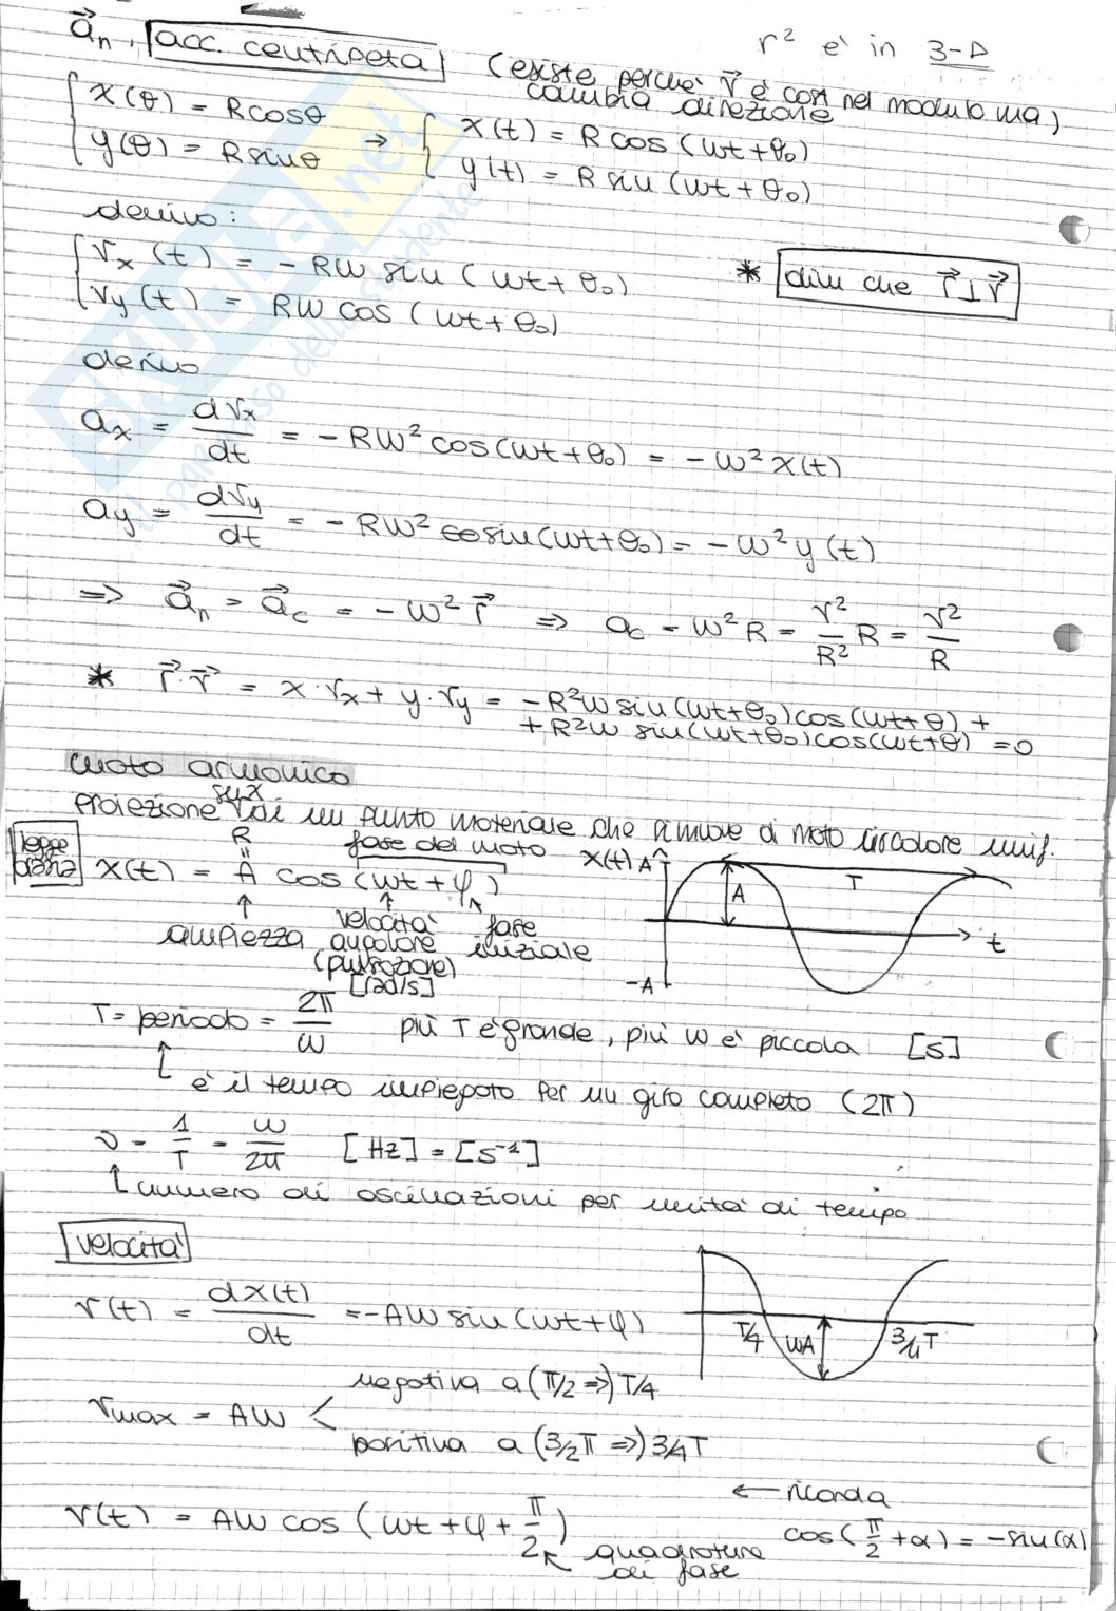 a⃗n , acc. centripeta (esiste perché v⃗ è cost nel modulo ma
cambia direzione)
r² è in 3-D
{ x(θ) = Rcosθ → { x(t) = R cos (ωt+θ₀)
{ y(θ) = Rsinθ { y(t) = R sin (ωt+θ₀)
derivo:
{ vx (t) = - Rω sin (ωt + θ₀)
{ vy (t) = Rω cos (ωt + θ₀)
* dim che r⃗⊥v⃗
derivo
ax = dvx/dt = - Rω² cos(ωt+θ₀) = - ω² x(t)
ay = dvy/dt = - Rω² sin(ωt+θ₀) = - ω² y(t)
=> a⃗n = a⃗c = - ω² r⃗ => ac = ω² R = v²/R² R = v²/R
* r⃗·v⃗ = x·vx + y·vy = - R²ω sin(ωt+θ₀)cos(ωt+θ) +
+ R²ω sin(ωt+θ₀)cos(ωt+θ) = 0
moto armonico
proiezione su x di un punto materiale che si muove di moto circolare unif.
legge oraria
R
=
x(t) = A cos (ωt + φ)
fase del moto
↑ ampiezza
↑ velocità angolare (pulsazione) [rad/s]
↖ fase iniziale
x(t) A
A
T
t
-A
T = periodo = 2π/ω più T è grande, più ω è piccola [s]
è il tempo impiegato per un giro completo (2π)
ν = 1/T = ω/2π [Hz] = [s⁻¹]
numero di oscillazioni per unità di tempo
velocità
v(t) = dx(t)/dt = -Aω sin (ωt+φ)
T/4 ωA 3/4T
vmax = Aω <
negativa a (π/2 =>) T/4
positiva a (3/2π =>) 3/4T
v(t) = Aω cos (ωt + φ + π/2)
↖ quadratura
di fase
← ricorda
cos(π/2 + α) = - sin(α)